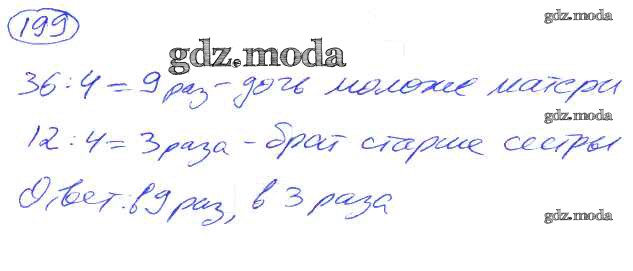 199
gdz.moda
gdz.moda
36:4=9 раз-дочь моложе матери
gdz.moda
12:4=3 раза-брат старше сестры
Ответ: в 9 раз, в 3 раза
gdz.moda